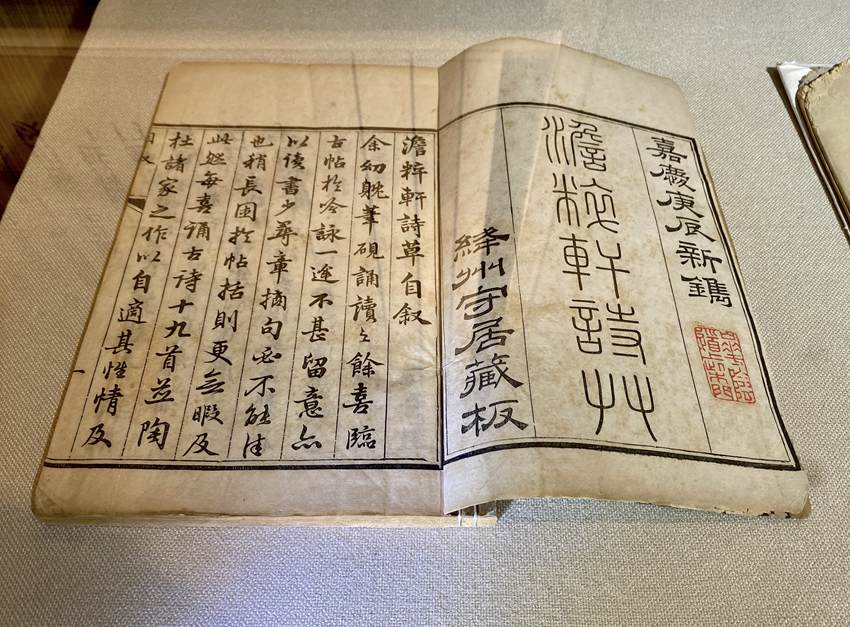 嘉慶庚辰新鐫
澹粹軒詩艸
絳州守居藏板
澹粹軒詩草自叙
余幼躭筆硯誦讀之餘喜臨
古帖於吟詠一途不甚留意亦
以讀書少尋章摘句必不能佳
也稍長困於帖括則更無暇及
此然每喜誦古诗十九首並陶
杜諸家之作以自適其性情及
一